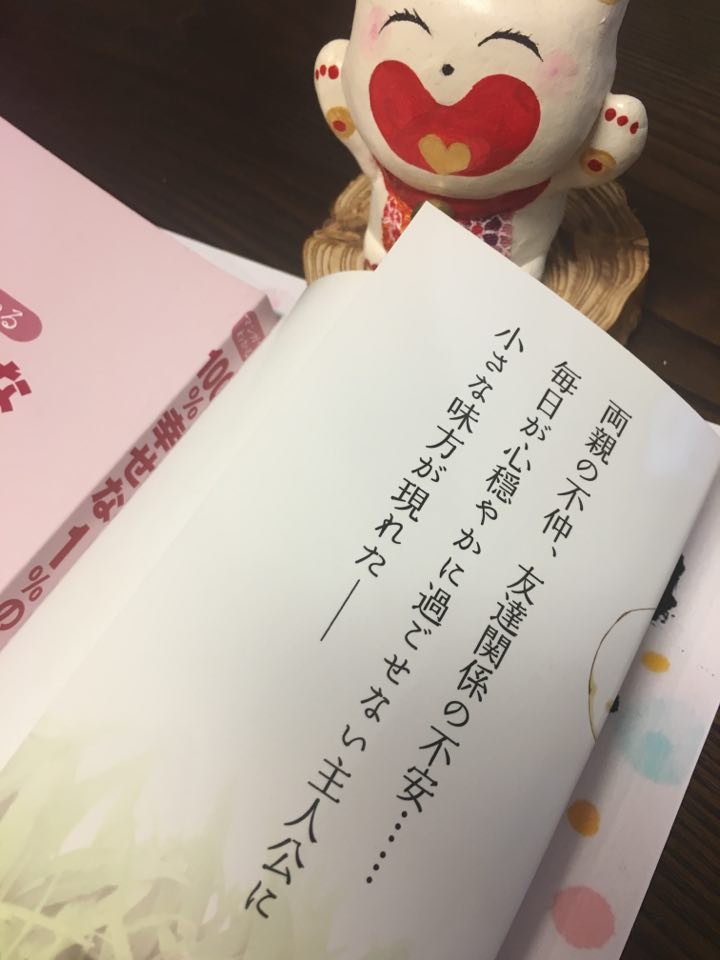 両親の不仲、友達関係の不安……
毎日が心穏やかに過ごせない主人公に
小さな味方が現れた――
る
な
100%幸せな1%の